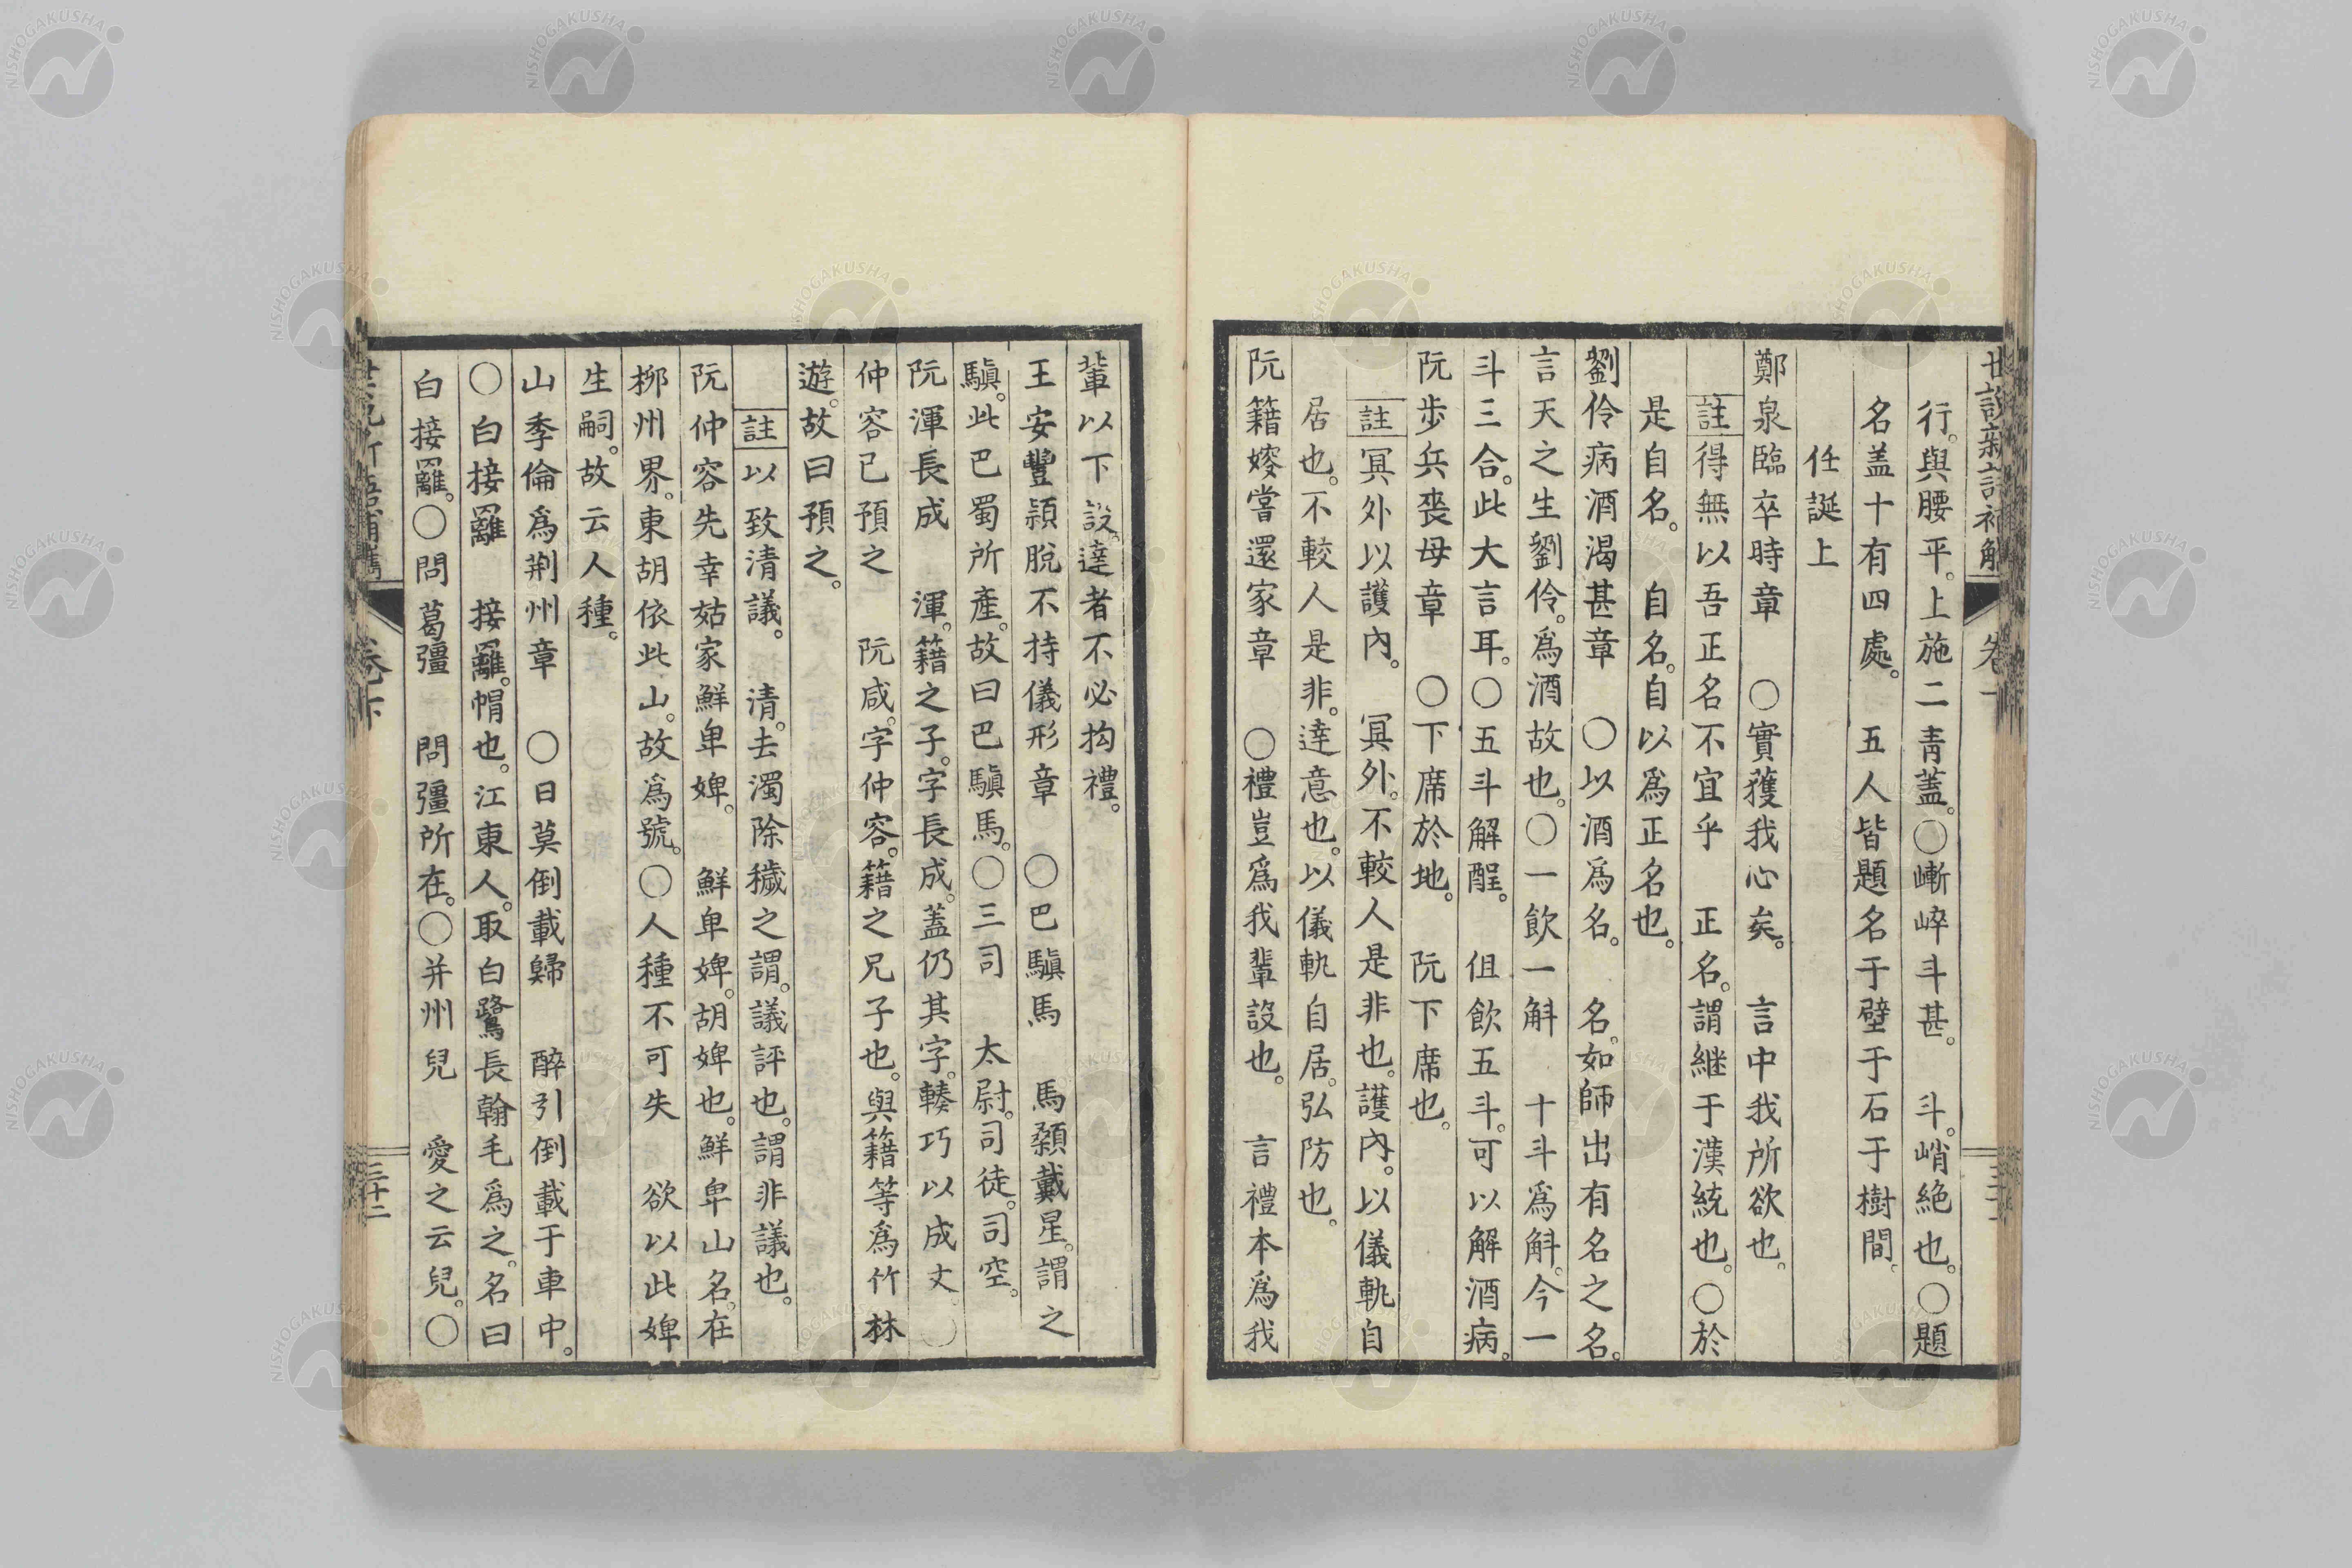 行。與腰平。上施二青蓋。〇嶄崪斗甚。　斗。峭絶也。〇題
名盖十有四處。　五人皆題名于壁于石于樹間。
任誕上
鄭泉臨卒時章　〇實獲我心矣。　言中我所欲也。
註得無以吾正名不宜乎　正名。謂継于漢統也。〇於
是自名。　自名。自以爲正名也。
劉伶病酒渴甚章　〇以酒爲名。　名。如師出有名之名。
言天之生劉伶。爲酒故也。〇一飲一斛　十斗爲斛。今一
斗三合。此大言耳。〇五斗解酲。　但飲五斗。可以解酒病。
阮步兵喪母章　〇下席於地。　阮下席也。
註冥外以護內。　冥外。不較人是非也。護內。以儀軌自
居也。不較人是非。達意也。以儀軌自居。弘防也。
阮籍嫂嘗還家章　〇禮豈爲我輩設也。　言禮本爲我
輩以下設。達者不必拘禮。
王安豐穎脫不持儀形章　〇巴騧馬　馬顙戴星。謂之
騧。此巴蜀所產。故曰巴騧馬。〇三司　太尉。司徒。司空。
阮渾長成　渾。籍之子。字長成。蓋仍其字。轃巧以成文。〇
仲容已預之　阮咸。字仲容。籍之兄子也。與籍等爲竹林
遊。故曰預之。
註以致清議。　清。去濁除穢之謂。議評也。謂非議也。
阮仲容先幸姑家鮮卑婢。　鮮卑婢。胡婢也。鮮卑山名。在
柳州界。東胡依此山。故爲號。〇人種不可失　欲以此婢
生嗣。故云人種。
山季倫爲荆州章　〇日莫倒載歸　醉引倒載于車中。
〇白接䍦　接䍦。帽也。江東人。取白鷺長翰毛爲之。名曰
白接䍦。〇問葛彊　問彊所在。〇并州兒　愛之云兒。〇
三十二